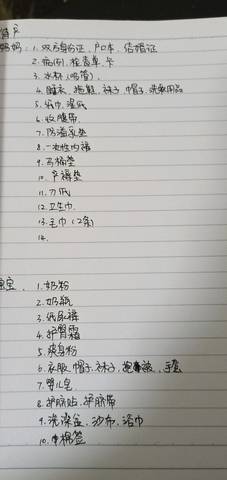 待产
妈妈: 1. 双方身份证、户口本、结婚证
2. 病例、检查单、卡
3. 水杯 (吸管)
4. 睡衣、拖鞋、袜子、帽子、洗漱用品
5. 纸巾、湿纸
6. 收腹带
7. 防溢乳垫
8. 一次性内裤
9. 马桶垫
10. 产褥垫
11. 刀纸
12. 卫生巾
13. 毛巾 (2条)
14.
宝宝: 1. 奶粉
2. 奶瓶
3. 纸尿裤
4. 护臀霜
5. 爽身粉
6. 衣服、帽子、袜子、抱被、手套
7. 婴儿皂
8. 护脐贴、护脐带
9. 洗澡盆、沙布、浴巾
10. 棉签